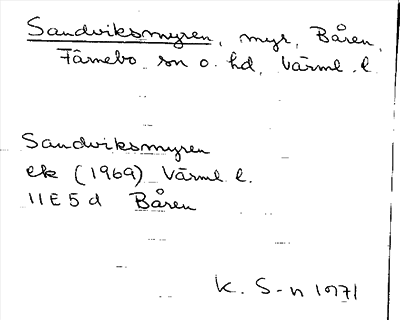 Sandviksmyren, myr, Båren,
Färnebo sn o. hd, Värml. l.
Sandviksmyren
ek (1969) Värml. l.
11E5d Båren
K. S-n 1971